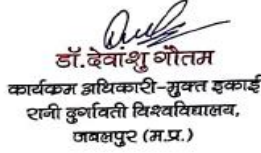 डॉ. देवांशु गौतम
कार्यक्रम अधिकारी-मुक्त इकाई
रानी दुर्गावती विश्वविद्यालय,
जबलपुर (म.प्र.)